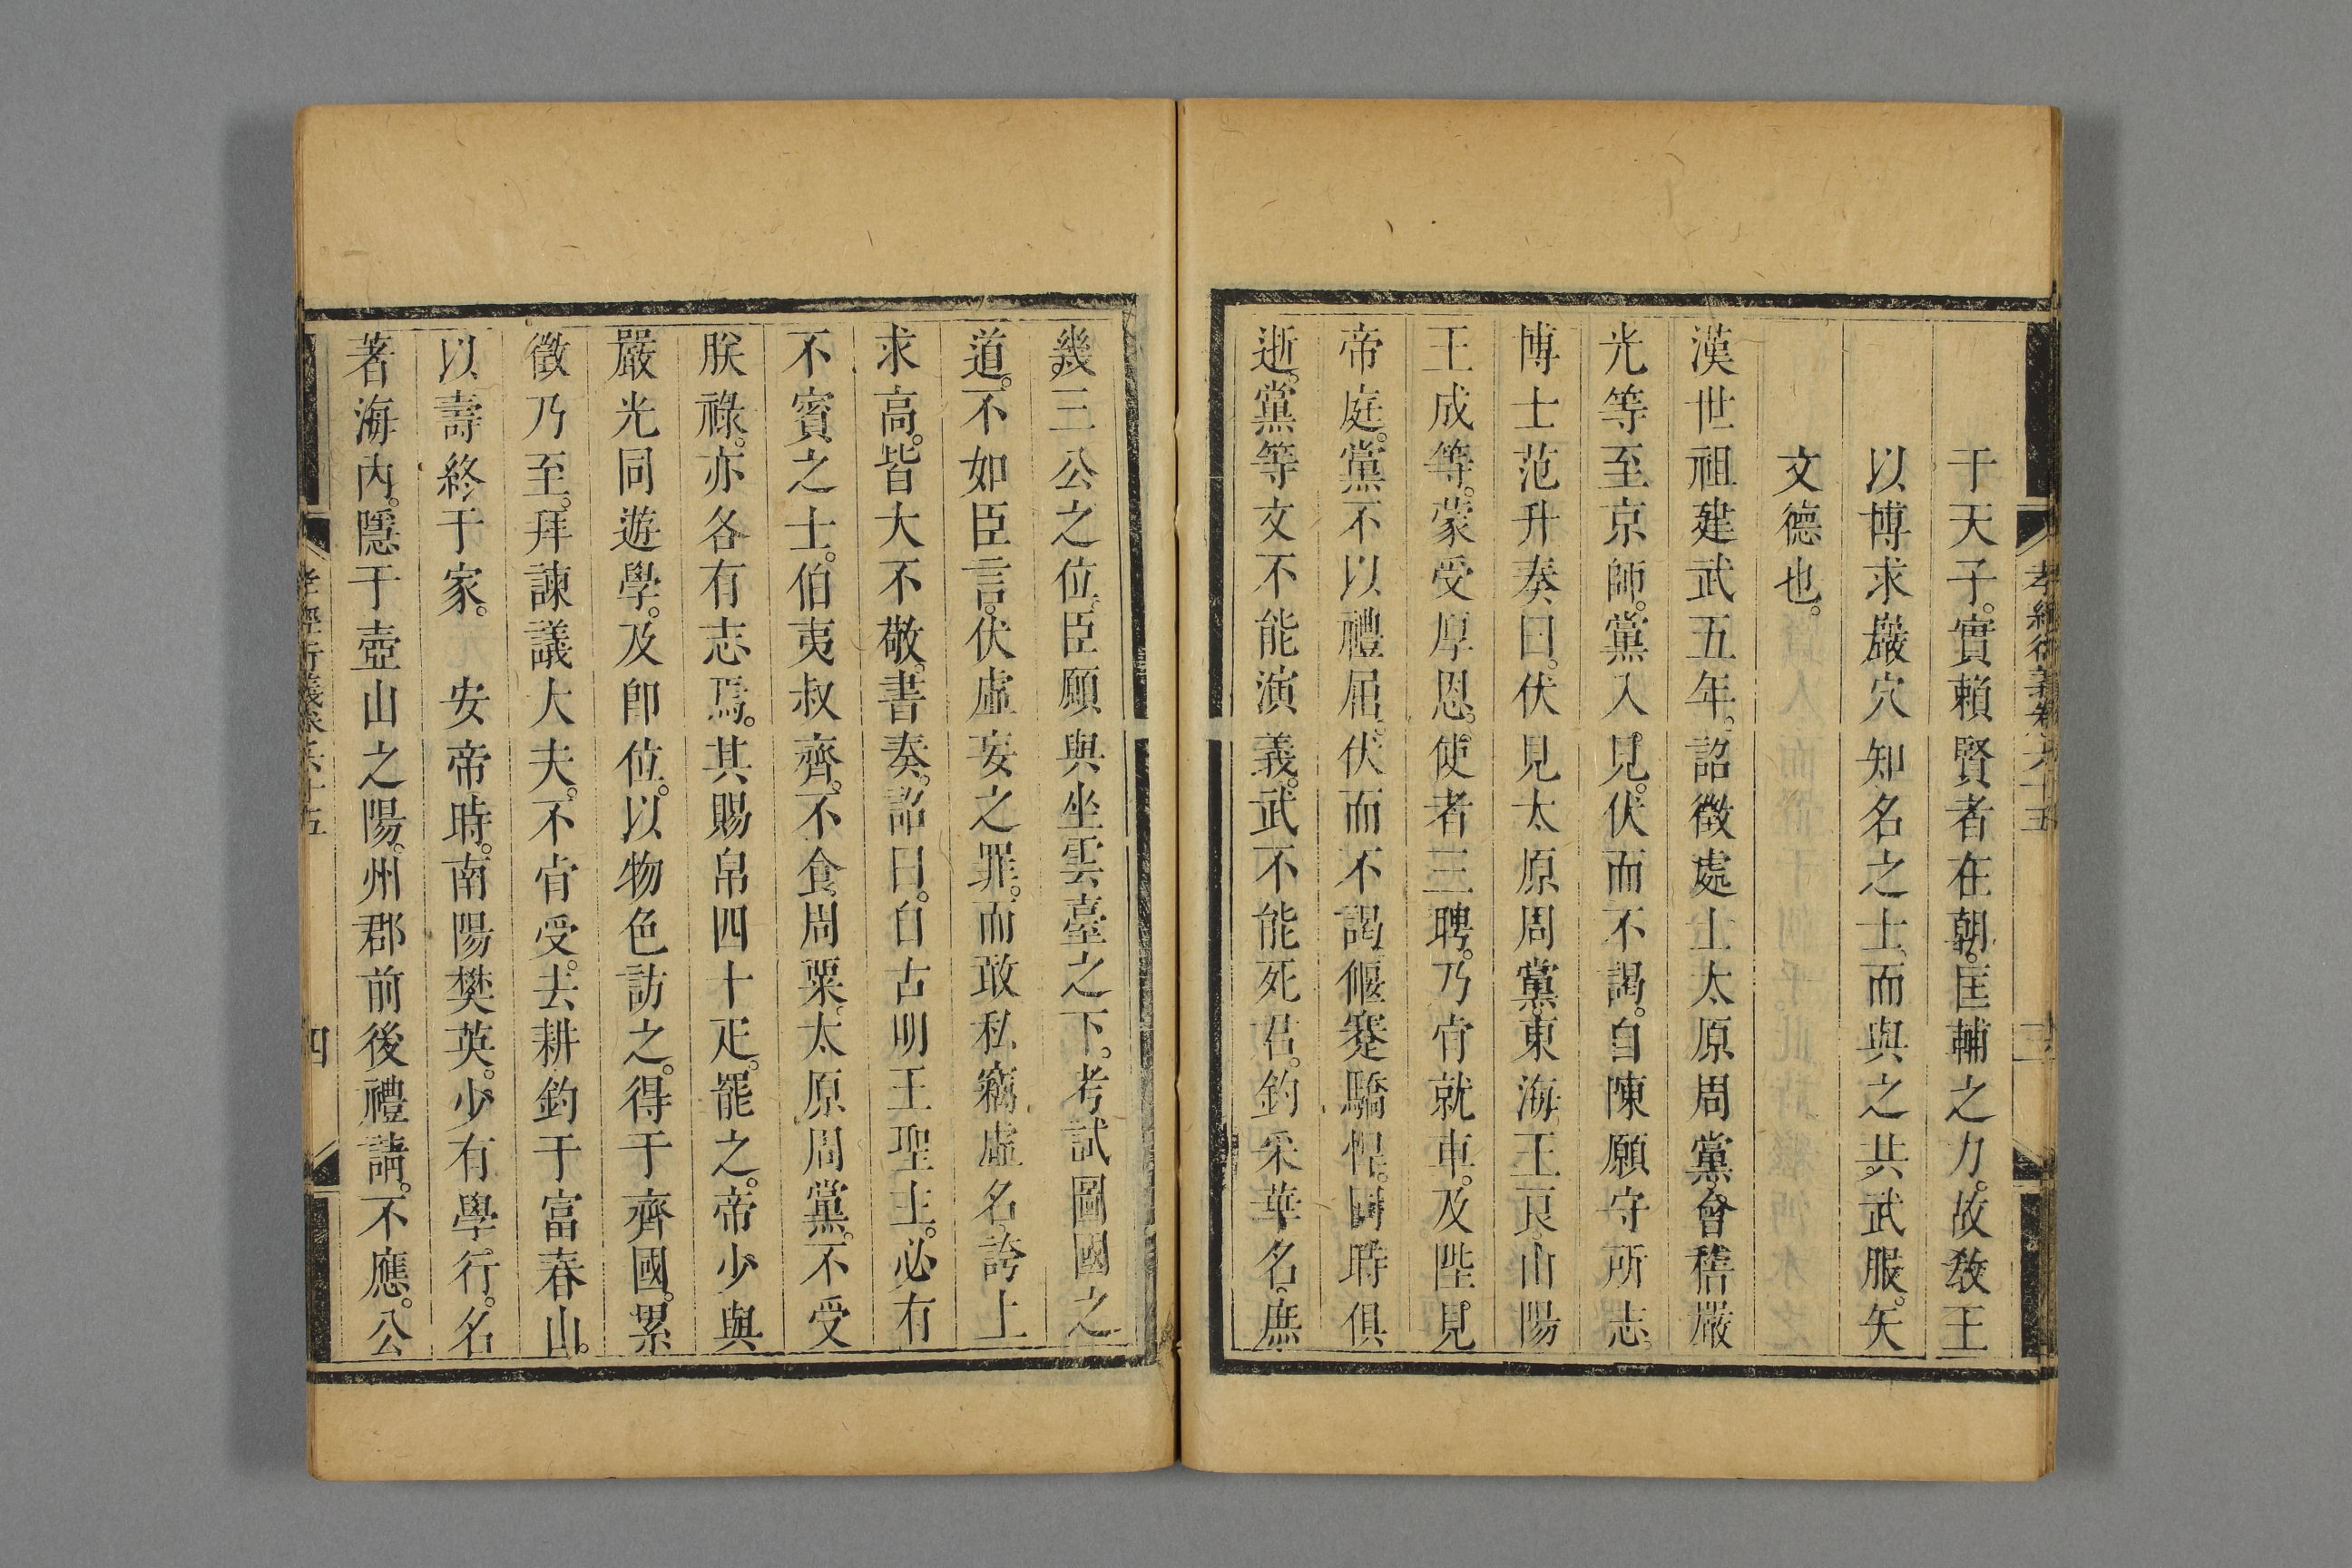 孝經衍義卷六十五
三
于天子。實賴賢者在朝。匡輔之力。故敎王
以博求巖穴知名之士。而與之共武服。矢
文德也。
漢世祖建武五年。詔徵處士太原周黨。會稽嚴
光等至京師。黨入見。伏而不謁。自陳願守所志。
博士范升奏曰。伏見太原周黨。東海王良。山陽
王成等。蒙受厚恩。使者三聘。乃肯就車。及陛見
帝庭。黨不以禮屈。伏而不謁。偃蹇驕悍。同時俱
逝。黨等文不能演義。武不能死君。釣采華名。庶
幾三公之位。臣願與坐雲臺之下。考試圖國之
道。不如臣言。伏虛妄之罪。而敢私竊虛名。誇上
求高。皆大不敬。書奏。詔曰。自古明王聖主。必有
不賓之士。伯夷叔齊。不食周粟。太原周黨。不受
朕祿。亦各有志焉。其賜帛四十疋。罷之。帝少與
嚴光同遊學。及卽位。以物色訪之。得于齊國。累
徵乃至。拜諫議大夫。不肯受。去耕釣于富春山。
以壽終于家。　安帝時。南陽樊英。少有學行。名
著海內。隱于壺山之陽。州郡前後禮請。不應。公
孝經衍義卷六十五
四